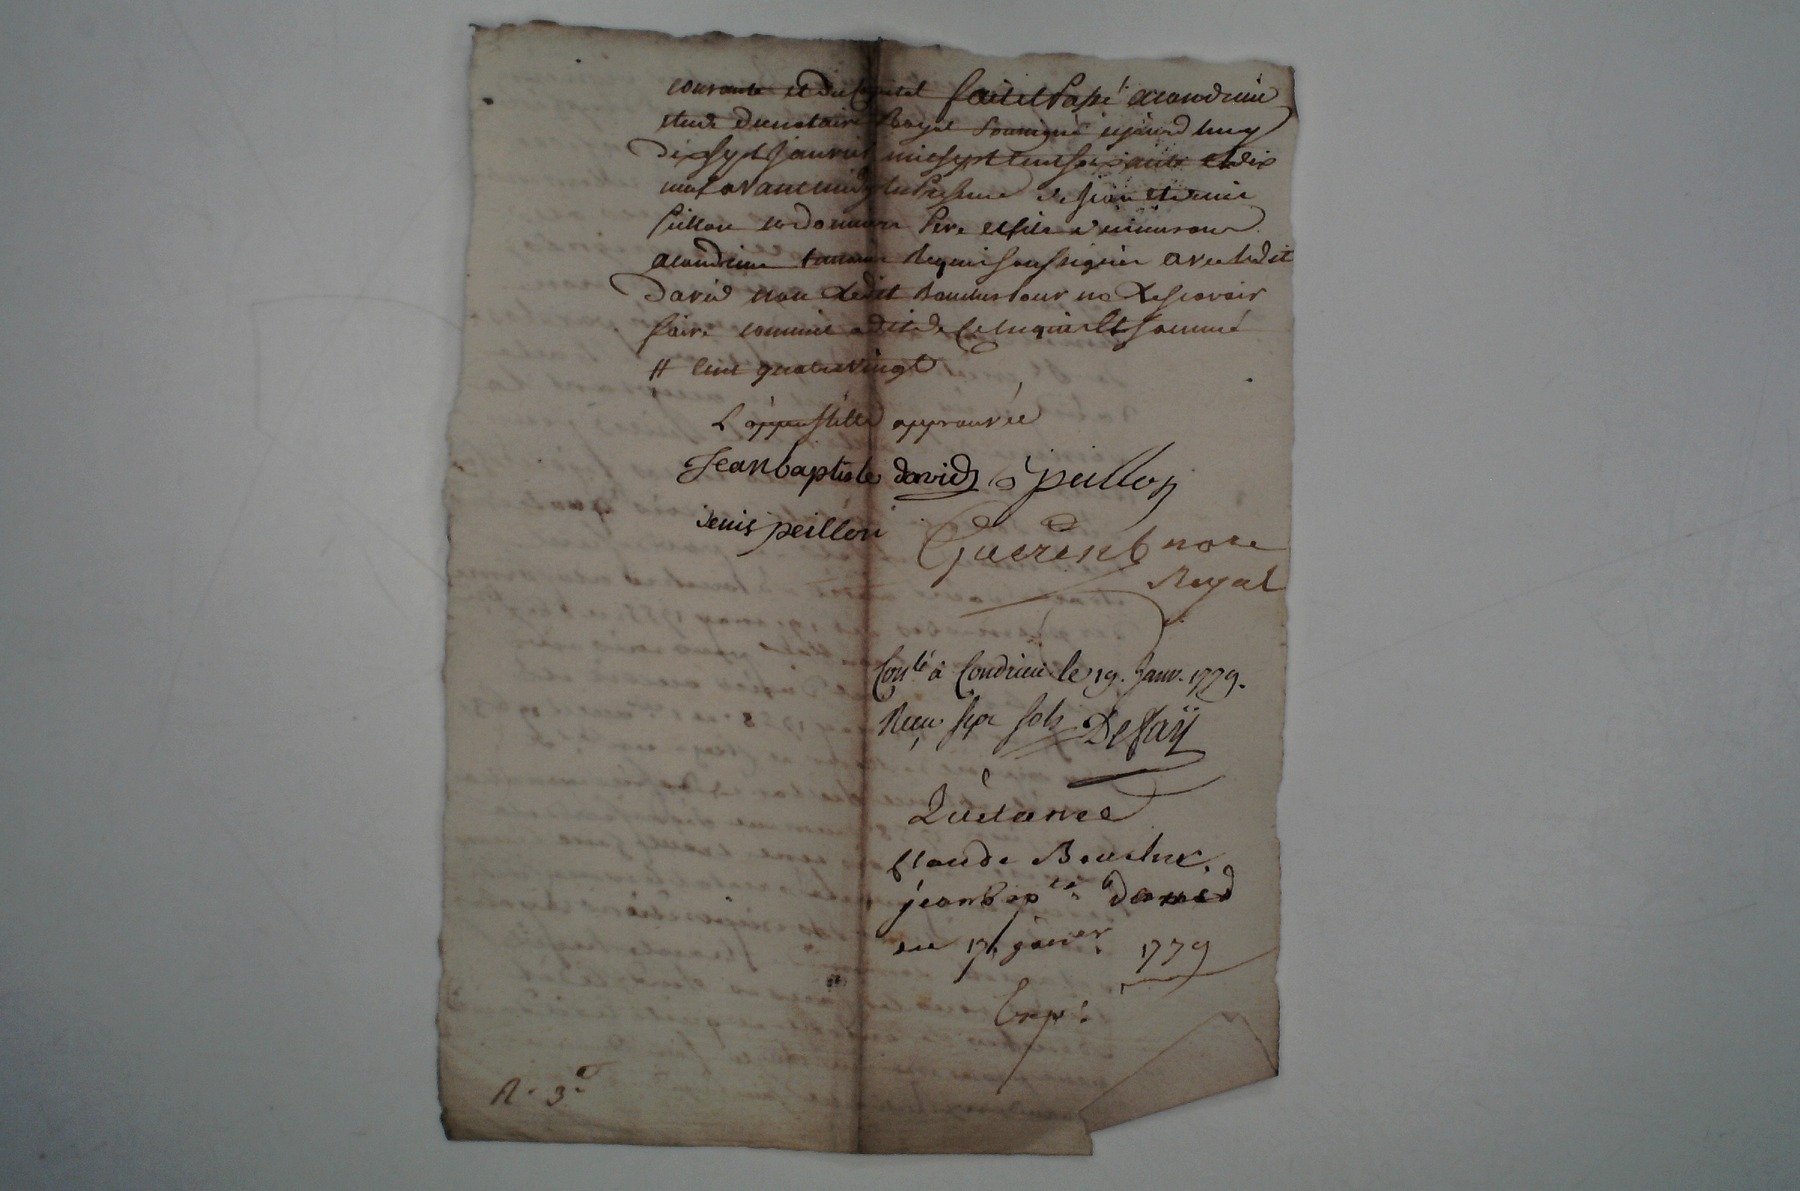 courante et du capital fait et Passé a Condrieu
étude du notaire Royal soussigné aujourd'huy
dix sept Janvier mil sept cent soixante et dix
neuf avant midy en Presence de Jean et denis
Peillon Cordonniers Pere et fils demeurant
a Condrieu temoins Requis soussignés avec ledit
David non Ledit Bouchu Pour ne Le scavoir
faire comme a dit de ce enquis et sommé
# cent quatrevingt
L'appostille approuvée
Jean baptiste david J peillon
denis peillon
Guerin no.re
Royal
Con.lé à Condrieu le 19. Janv. 1779.
Reçu sept sols Defaÿ
Quitance
Claude Bouchu
jean bap.te David
du 17 janer. 1779
Exp.
R. 3.